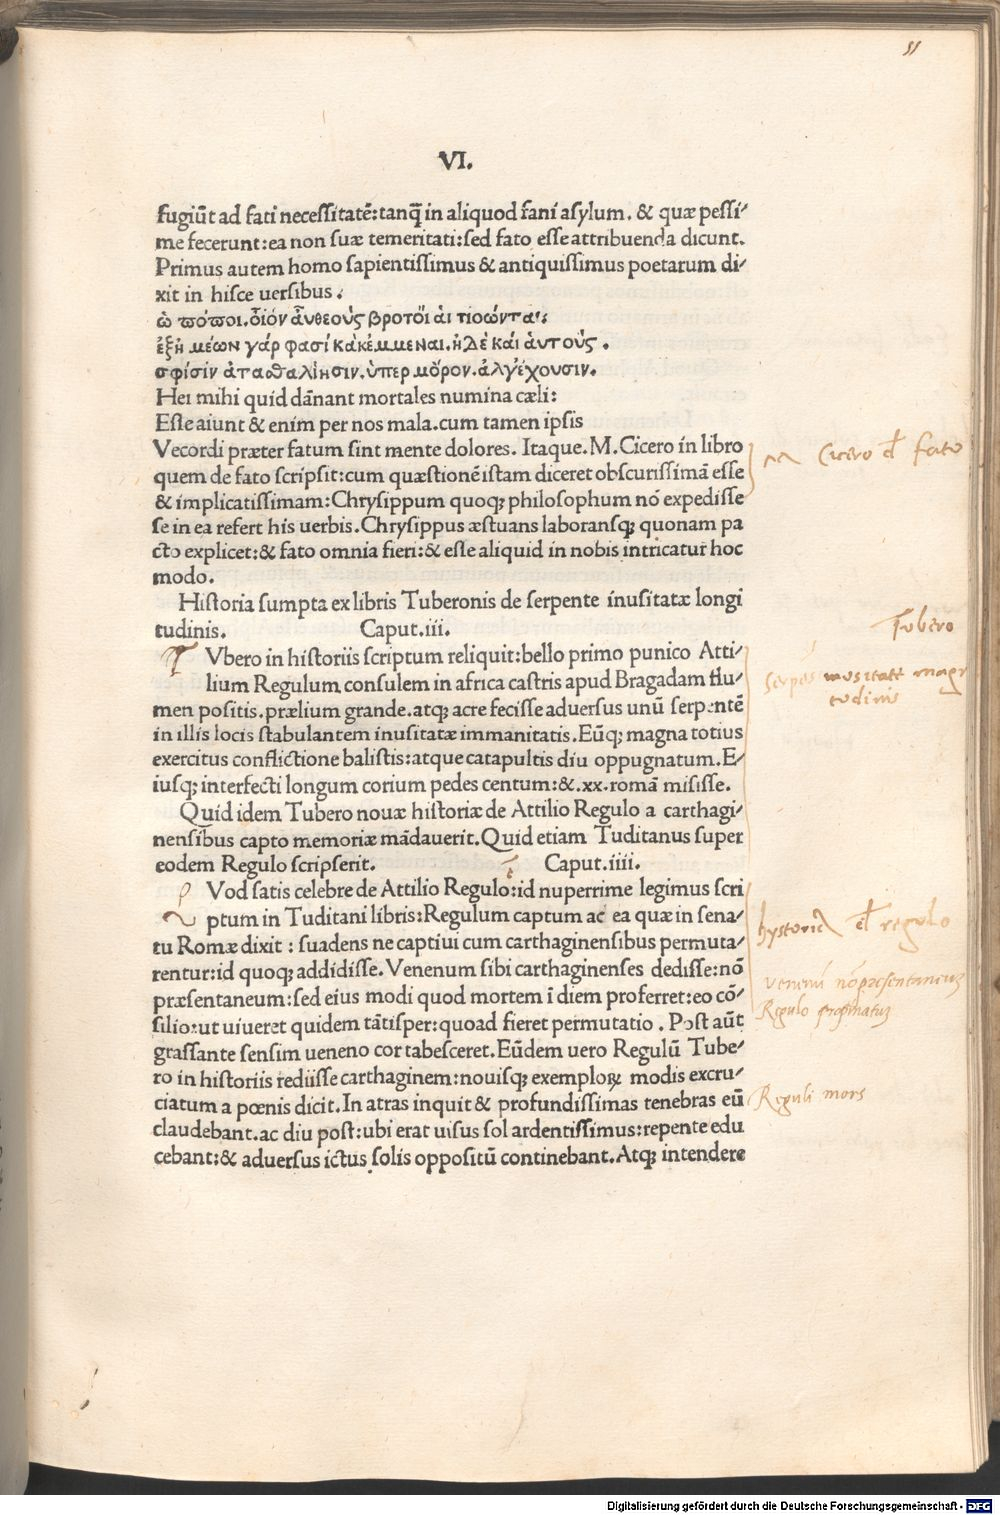 VI.
fugiūt ad fati necessitatē:tanq̄ in aliquod fani asylum. & quæ pessi/
me fecerunt:ea non suæ temeritati:sed fato esse attribuenda dicunt.
Primus autem homo sapientissimus & antiquissimus poetarum di/
xit in hisce uersibus.
ὠ πόποι.ὅιόν ἄνθεοὺς βροτὅι ἁι τιοώνται:
ἐξἠ μέων γάρ φασί κἀκέμμεναι.ἠΔὲ κἁι ἀυτοὺς.
σφίσίν ἀτασθαλίησιν.ὑπερ μὅρον.ἀλγἐχουσιν.
Hei mihi quid dānant mortales numina cæli:
Esse aiunt & enim per nos mala.cum tamen ipsis
Vecordi præter fatum sint mente dolores. Itaque.M.Cicero in libro
quem de fato scripsit:cum quæstionē istam diceret obscurissimā esse
& implicatissimam:Chrysippum quoq; philosophum nō expedisse
se in ea refert his uerbis.Chrysippus æstuans laboransq; quonam pa
cto explicet:& fato omnia fieri:& esse aliquid in nobis intricatur hoc
modo.
Historia sumpta ex libris Tuberonis de serpente inusitatæ longi
tudinis. Caput.iii.
T Vbero in historiis scriptum reliquit:bello primo punico Atti/
lium Regulum consulem in africa castris apud Bragadam flu/
men positis.prælium grande.atq; acre fecisse aduersus unū serpentē
in illis locis stabulantem inusitatæ immanitatis.Eūq; magna totius
exercitus conflictione balistis:atque catapultis diu oppugnatum.E/
iusq; interfecti longum corium pedes centum:&.xx.romā misisse.
Quid idem Tubero nouæ historiæ de Attilio Regulo a carthagi/
nensibus capto memoriæ mādauerit.Quid etiam Tuditanus super
eodem Regulo scripserit. Caput.iiii.
Vod satis celebre de Attilio Regulo:id nuperrime legimus scri
ptum in Tuditani libris:Regulum captum ac ea quæ in sena/
tu Romæ dixit : suadens ne captiui cum carthaginensibus permuta/
rentur:id quoq; addidisse.Venenum sibi carthaginenses dedisse:nō
præsentaneum:sed eius modi quod mortem ī diem proferret:eo cō/
silio:ut uiueret quidem tātisper:quoad fieret permutatio. Post aūt
grassante sensim ueneno cortabesceret.Eūdem uero Regulū Tube/
ro in historiis rediisse carthaginem:nouisq; exemploꝝ modis excru/
ciatum a pœnis dicit.In atras inquit & profundissimas tenebras eū
claudebant.ac diu post:ubi erat uisus sol ardentissimus:repente edu
cebant:& aduersus ictus solis oppositū continebant.Atq; intendere
Cicero de fato
Tubero
inusitate magni
tudinis
Regulo
Reguli mors
Digitalisierung gefördert durch die Deutsche Forschungsgemeinschaft - DFG